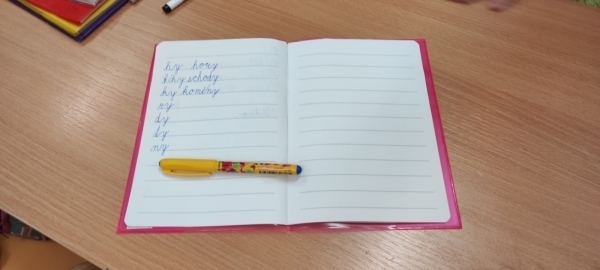 hy hory
chy schody
ky komíny
ry
dy
ty
ny